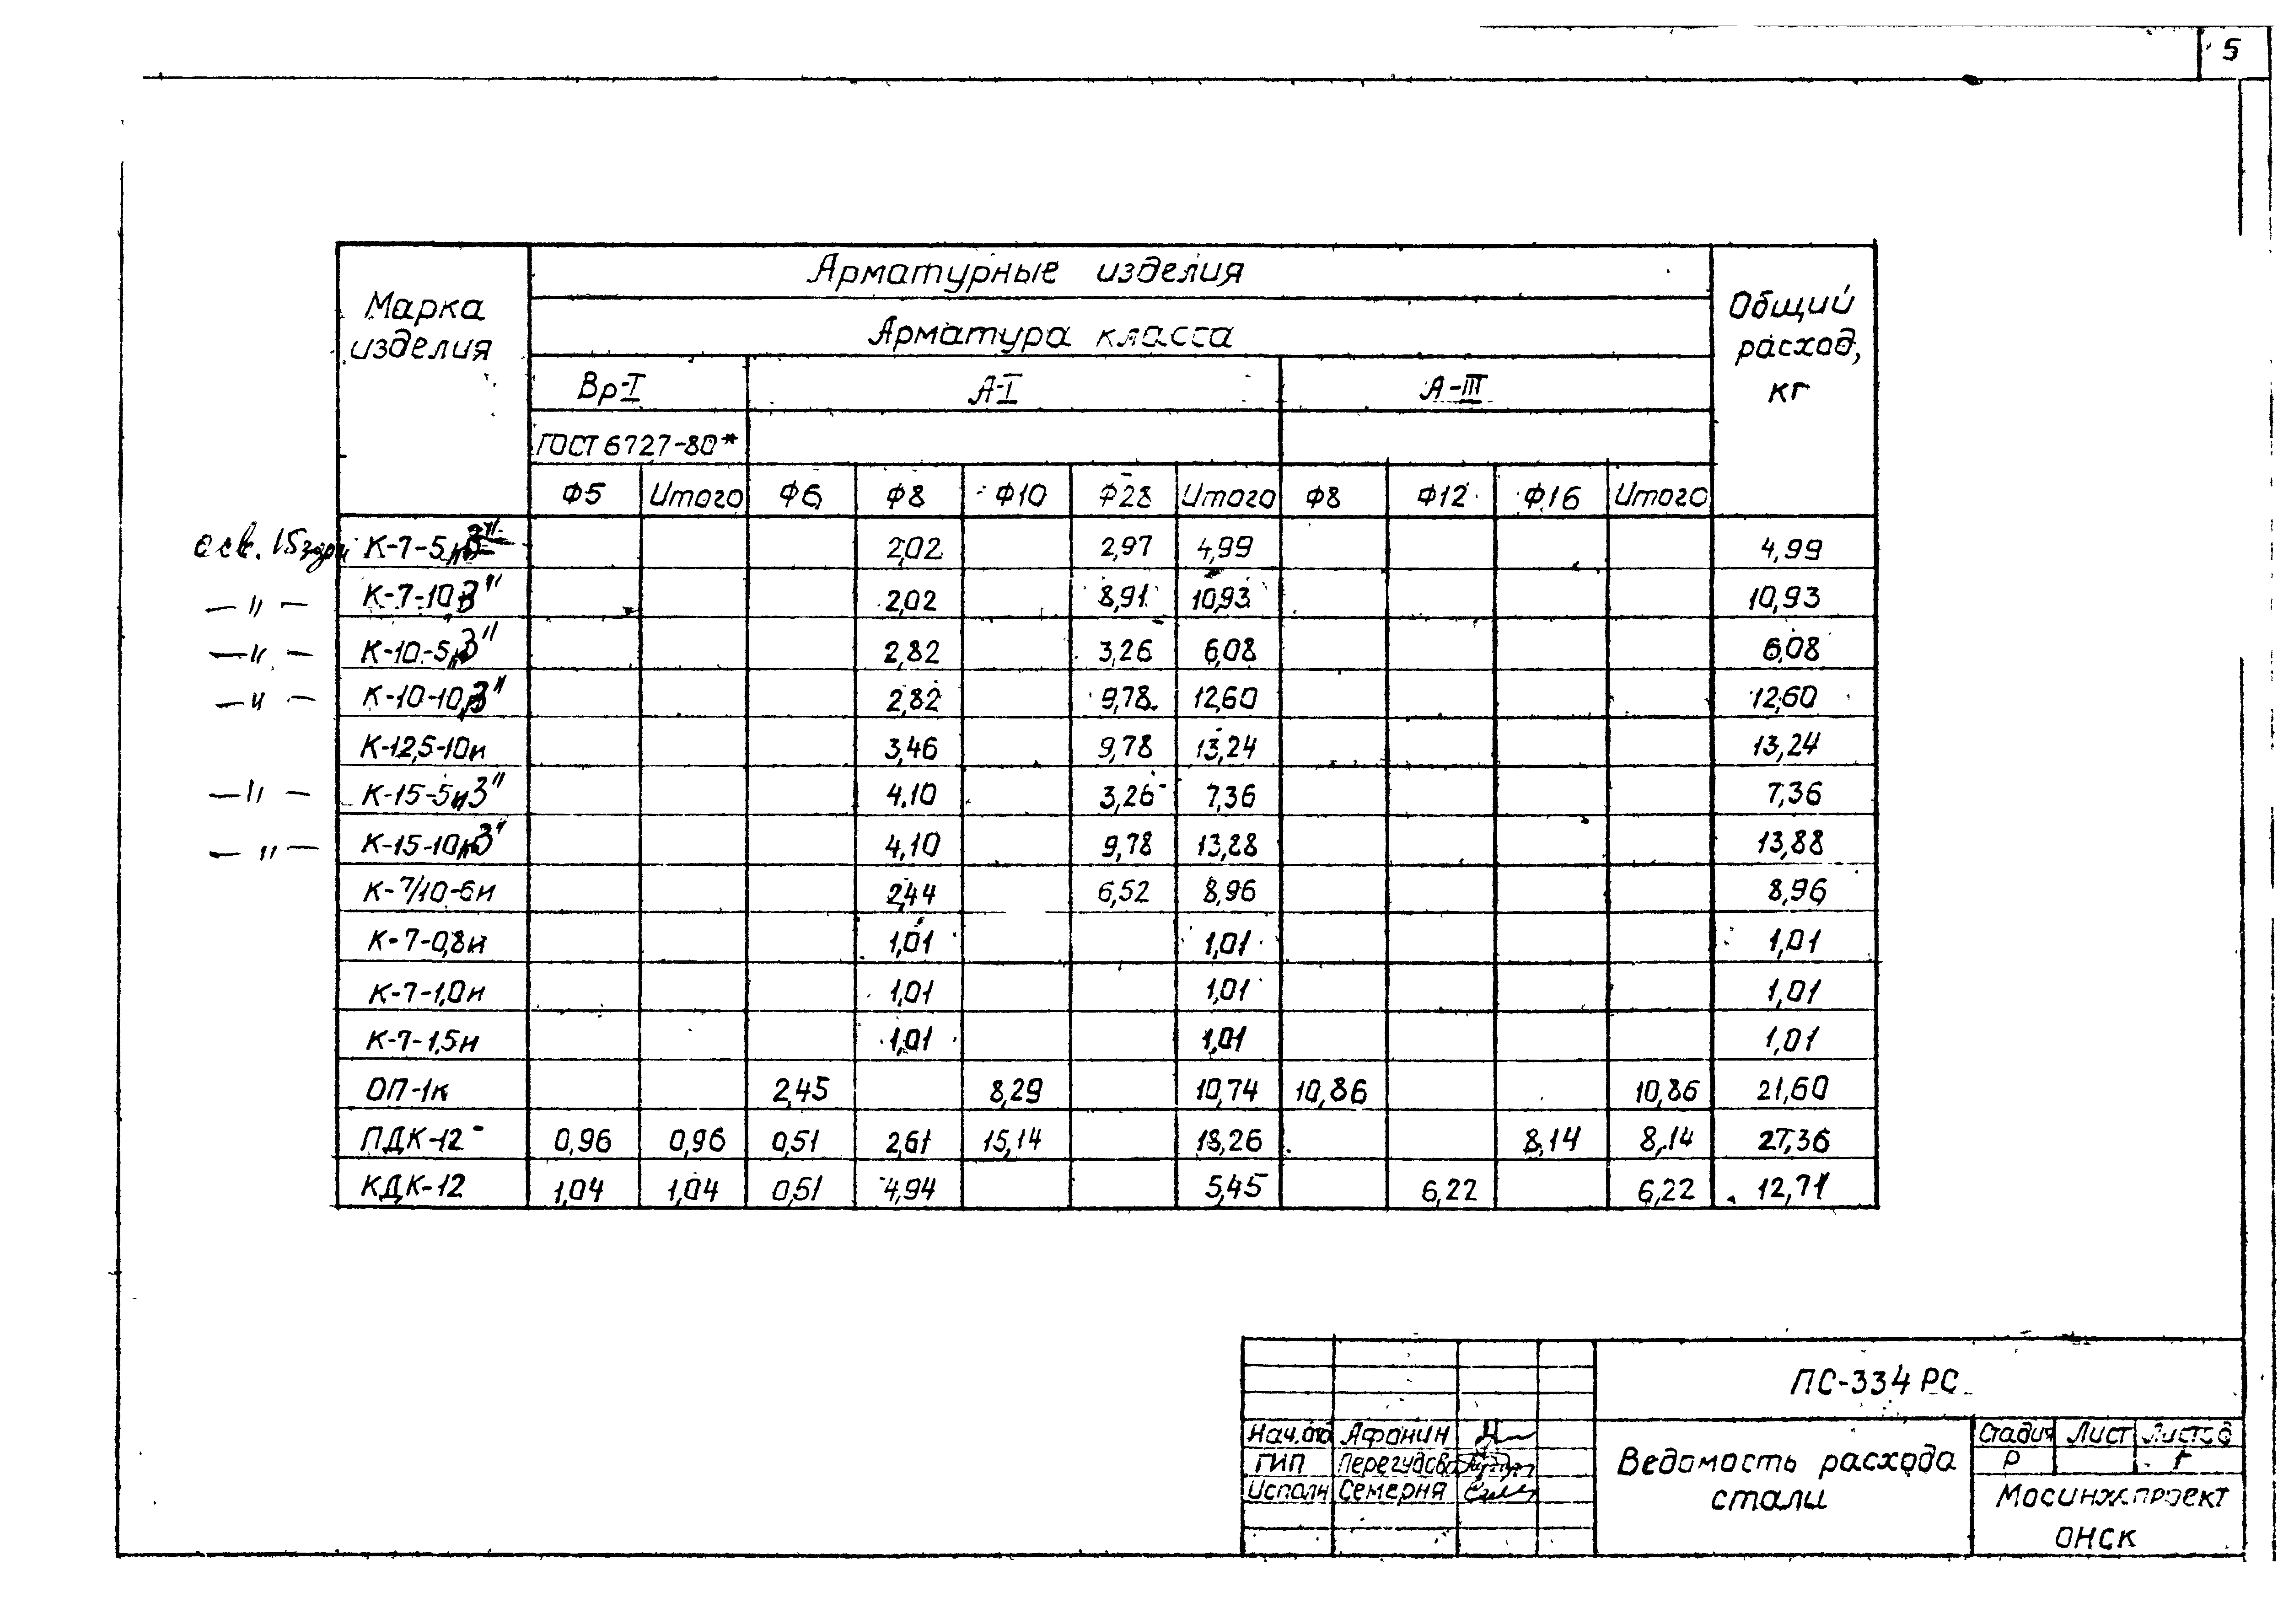 5
Марка изделия | Арматурные изделия | Общий расход, кг
Арматура класса
Вр-I | А-I | А-III
ГОСТ 6727-80*
Ф5 | Итого | Ф6 | Ф8 | Ф10 | Ф28 | Итого | Ф8 | Ф12 | Ф16 | Итого
К-7-5 "З" | 2,02 | 2,97 | 4,99 | 4,99
— " — К-7-10 "З" | 2,02 | 8,91 | 10,93 | 10,93
— " — К-10-5 "З" | 2,82 | 3,26 | 6,08 | 6,08
— " — К-10-10 "З" | 2,82 | 9,78 | 12,60 | 12,60
К-12,5-10н | 3,46 | 9,78 | 13,24 | 13,24
— " — К-15-5 "З" | 4,10 | 3,26 | 7,36 | 7,36
— " — К-15-10 "З" | 4,10 | 9,78 | 13,88 | 13,88
К-7/10-6н | 2,44 | 6,52 | 8,96 | 8,96
К-7-0,8н | 1,01 | 1,01 | 1,01
К-7-1,0н | 1,01 | 1,01 | 1,01
К-7-1,5н | 1,01 | 1,01 | 1,01
ОП-1к | 2,45 | 8,29 | 10,74 | 10,86 | 10,86 | 21,60
ПДК-12 | 0,96 | 0,96 | 0,51 | 2,61 | 15,14 | 18,26 | 8,14 | 8,14 | 27,36
КДК-12 | 1,04 | 1,04 | 0,51 | 4,94 | 5,45 | 6,22 | 6,22 | 12,71
ПС-334 РС
Нач.отд | Афонин
ГИП | Перегудова
Исполн | Семерня
Ведомость расхода
стали
Стадия | Лист | Листов
Р | 1
Мосинжпроект
ОНСК